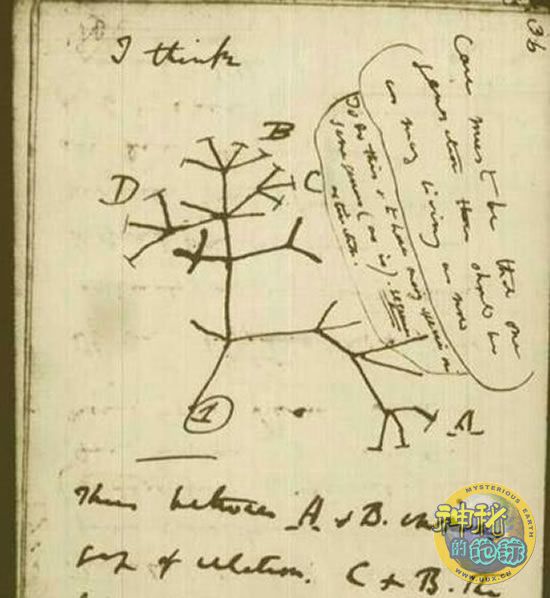 36
I think
Case must be that one
generation then should be
as many living as now
To do this & to have many species in
same genus (as is). requires
extinction.
B
D
C
1
A
Thus between A. & B.
gap of relation. C & B. The
MYSTERIOUS EARTH
神秘
的地球
WWW.UUX.CN